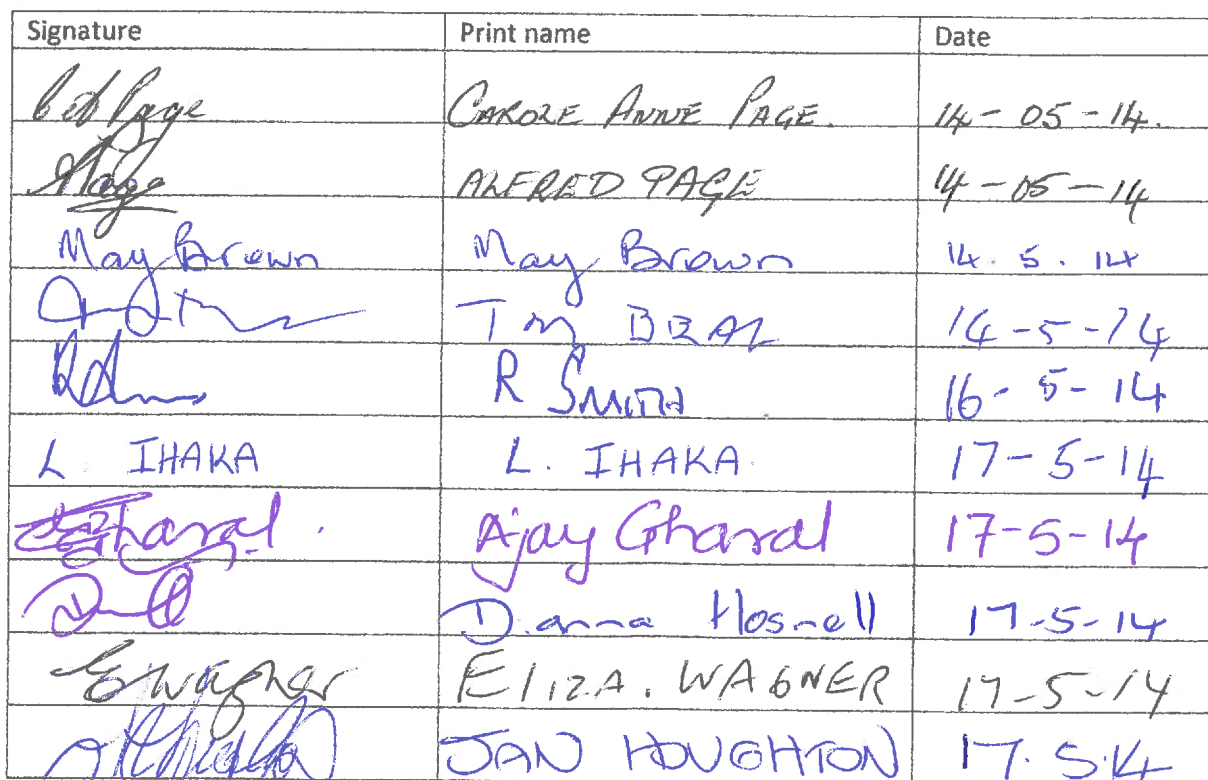 Signature Print name Date
Page CAROLE ANNE PAGE. 14-05-14.
Page ALFRED PAGE 14-05-14
May Brown May Brown 14.5.14
14-5-14
R SMITH 16-5-14
L. IHAKA L. IHAKA. 17-5-14
Gharal. Ajay Gharal 17-5-14
17-5-14
E Wagner ELIZA. WAGNER 17-5-14
JAN HOUGHTON 17.5.14